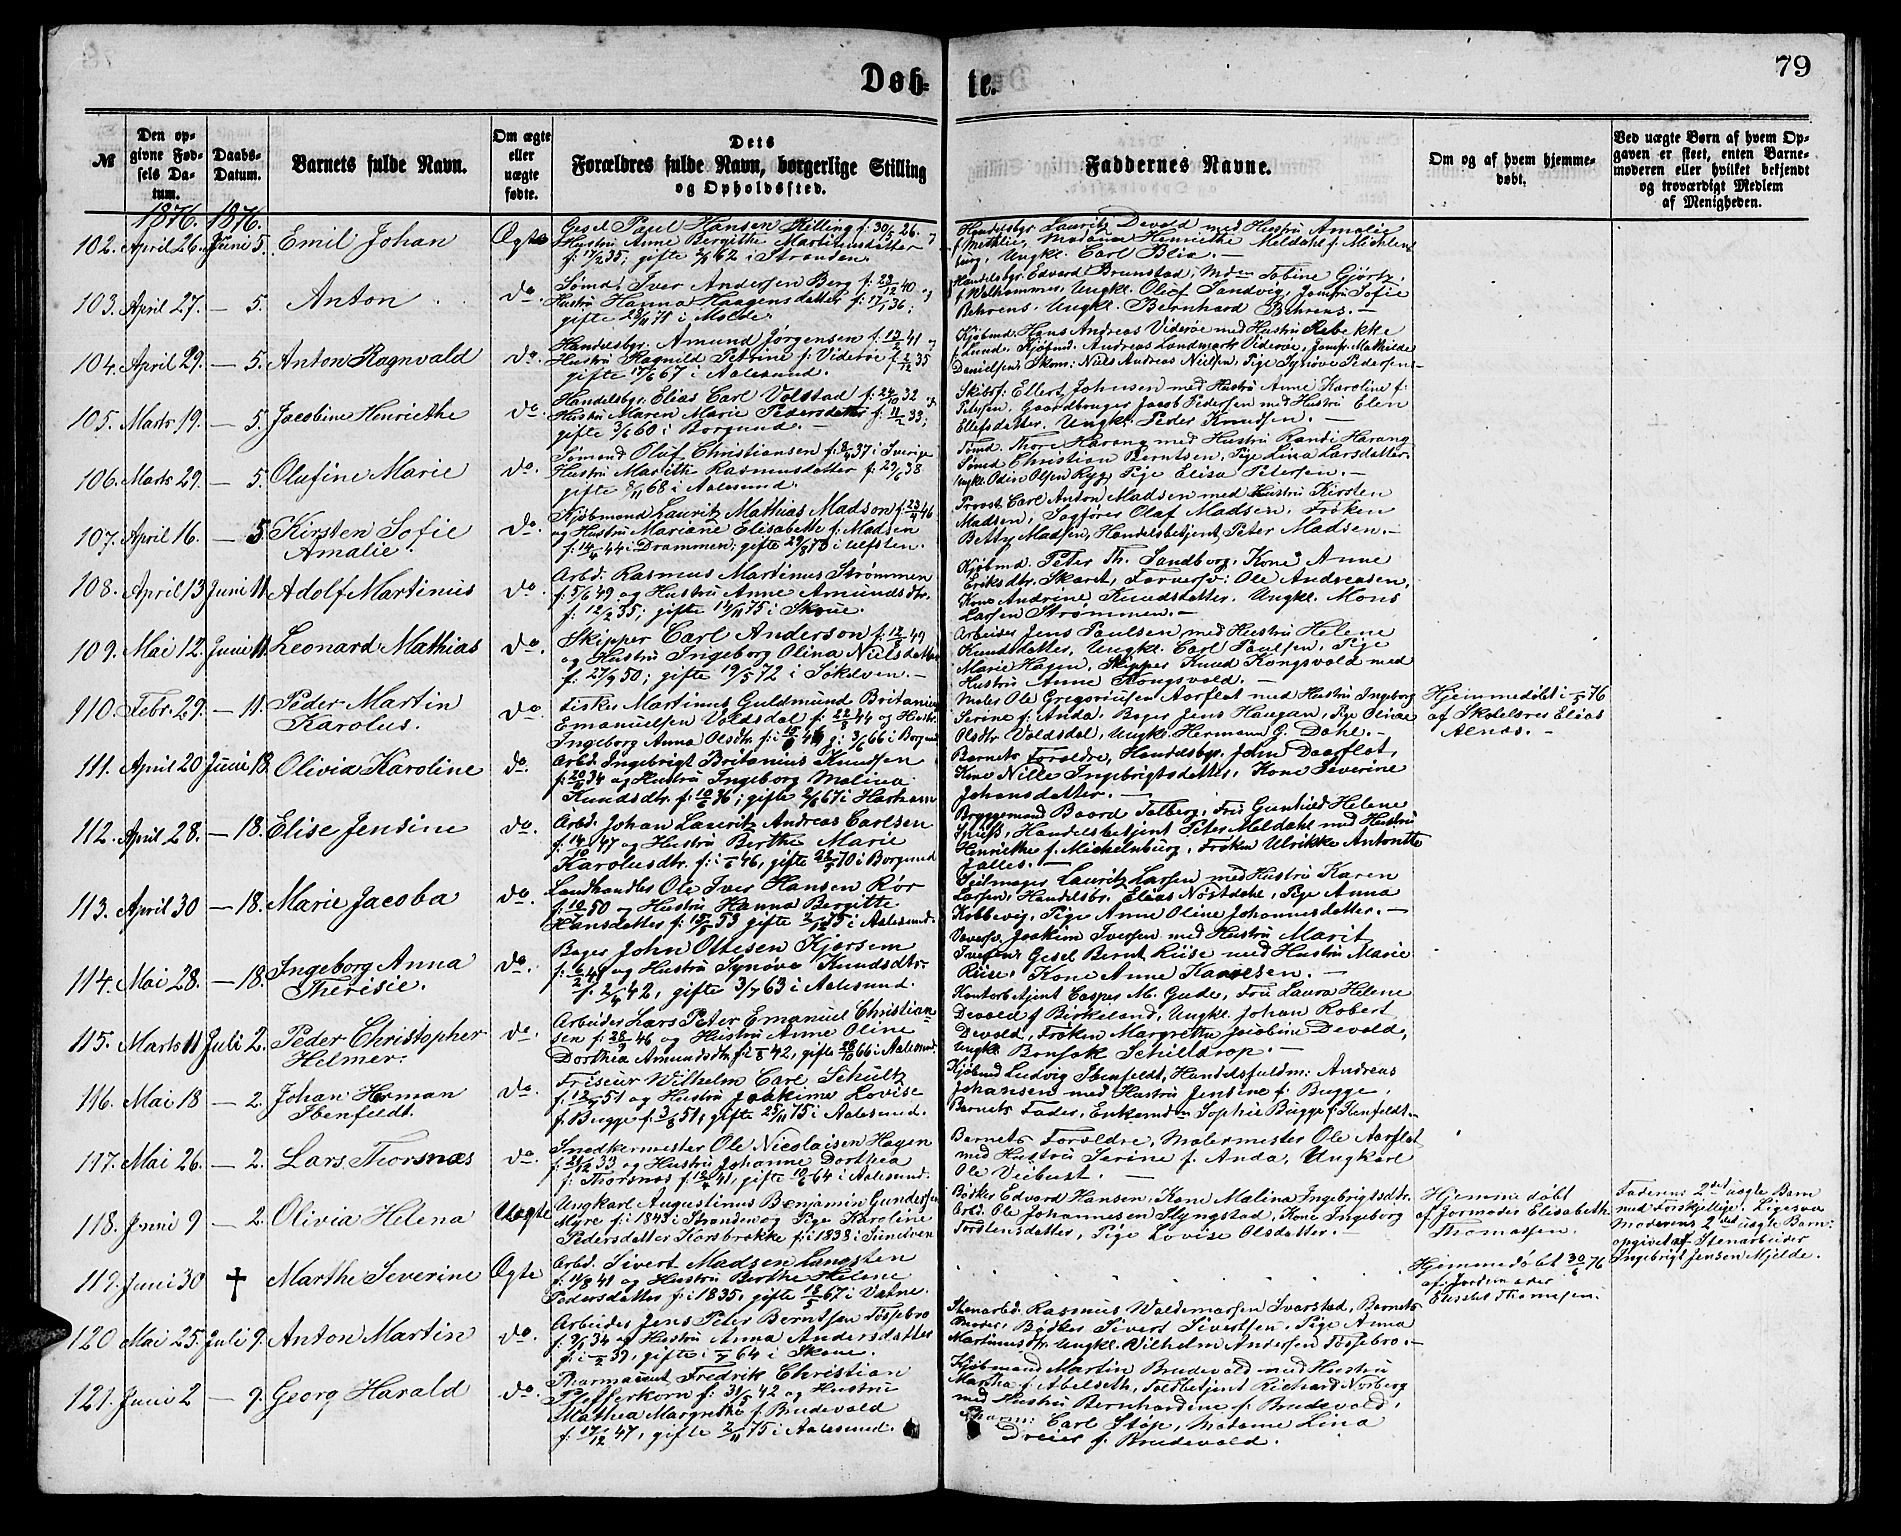 Døb-
te.
79
№
Den op-
givne Fød-
sels Da-
tum.
Daabs-
Datum.
Barnets fulde Navn.
Om ægte
eller
uægte
fødte.
Dets
Forældres fulde Navn, borgerlige Stilling
og Opholdssted.
Faddernes Navne.
Om og af hvem hjemme-
døbt.
Ved uægte Børn af hvem Op-
gaven er skeet, enten Barne-
moderen eller hvilket bekjendt
og troværdigt Medlem
af Menigheden.
1876. 1876.
102. April 26. Juni 5. Emil Johan Ægte
Hansen Killing f. 30/5 26.
Hustru Anne Bergithe Martinusdatter
gifte 62 i Stranden.
Handelsbgr Lauritz Devold med Hustru Amalie
Madame Henriette Meldahl f. Michlen-
burg, Ungkl. Carl Blix.
103. April 27. — 5. Anton do.
Sømd. Iver Andersen Berg f. 23/12 40 og
Hustru Hanna Haagensdatter f. 17/1 36;
gifte 23/11 71 i Molde.
Handelsbgr. Edvard Brunstad,
Ungkl. Oluf Sandvig, Jomfr Sofie
Behrens, Ungkl. Bernhard Behrens.
104. April 29. — 5. Anton Ragnvald do.
Handelsbgr. Amund Jørgensen f. 12/2 41 og
Hustru Ragnild Petrine f. Viderøe f. 2/12 35
gifte 17/6 67 i Aalesund.
Kjøbmd. Hans Andreas Viderøe med Hustru Rebekke
f. Lund, Kjøbmd. Andreas Landmark Viderøe, Jomf. Mathilde
Danielsen, Niels Andreas Nielsen, Pige Synøve Pedersen
105. Marts 19. — 5. Jacobine Henriethe do.
Handelsbgr. Elias Carl Volstad f. 24/10 32 og
Hustru Maren Marie Pedersdatter f. 11/2 33;
gifte 3/6 60 i Borgund.
Skibsf: Ellert Johnsen med Hustru Anne Karoline f.
Petersen, Gaardbruger Jacob Pedersen med Hustru Elen
Ellefsdatter, Ungkl. Peder Knudsen.
106. Marts 29. — 5. Olufine Marie do.
Sømand Oluf Christiansen f. 8/4 37 i Sverige
Hustru Marithe Rasmusdatter f. 29/6 38
gifte 8/11 68 i Aalesund.
Tømd. Thore Harang med Hustru Randi Harang
Sømd Christian Berntsen, Pige Lina Larsdatter,
Ungkl. Odin Olsen Ryg, Pige Elisa Petersen.
107. April 16. — 5. Kirsten Sofie
Amalie. do.
Kjøbmand Lauritz Mathias Madsen f. 23/4 46
og Hustru Mariane Elisabeth f. Madsen
f. 14/4 44 i Drammen; gifte 29/8 73 i Ulfsten.
Provst Carl Anton Madsen med Hustru Kirsten
Madsen, Sagfører Olaf Madsen, Frøken
Betty Madsen, Handelsbetjent Peter Madsen.
108. April 13 Juni 11. Adolf Martinus do.
Arbd. Rasmus Martinus Strømmen
f. 5/6 49 og Hustru Anne Amundsdtr.
f. 12/2 35; gifte 14/11 75 i Skoue.
Kjøbmd. Peter Th. Sandborg, Kone Anne
Eriksdtr. Skaret, Farversv: Ole Andreasen,
Kone Andrine Knudsdatter, Ungkl. Mons
Larsen Strømmen.
109. Mai 12. Juni 11. Leonard Mathias do.
Skipper Carl Anderson f. 12/3 49
og Hustru Ingeborg Olina Nielsdatter
f. 27/9 50; gifte 19/5 72 i Søkelven.
Arbeider Jens Paulsen med Hustru Helene
Knudsdatter, Ungkl. Carl Paulsen, Pige
Marie Hagen, Skipper Knud Kongsvold med
Hustru Anne Kongsvold.
110. Febr. 29. — 11. Peder Martin
Karolus. do.
Fisker Martinus Guldmund Britanius
Emanuelsen Voldsdal f. 22/3 44 og Hustr.
Ingeborg Anna Olsdtr. g. 3/6 66 i Borgund
Maler Ole Gregoriusen Aarflot med Hustru Ingeborg
Serine f. Anda, Bager Jens Haugan, Pige Oline
Olsdtr. Voldsdal, Ungkl. Herman G. Dahl.
Hjemmedøbt i 76
af Skolelærer Elias
Alnæs.
111. April 20 Juni 18. Olivia Karoline do.
Arbd. Ingebrigt Britanius Knudsen
34 og Hustru Ingeborg Malina
Knudsdtr. f. 10/6 36; gifte 2/6 67 i Harham
Barnets Forældre, Handelsbgr. John Daarflot,
Kone Nille Ingebrigtsdatter, Kone Severine
Johansdatter.
112. April 28. — 18. Elise Jensine do.
Arbd. Johan Lauritz Andreas Carlsen
f. 14/10 47 og Hustru Berthe Marie
Karolusdtr. f. i 46, gifte 70 i Borgund
Bryggemand Baard Talberg, Fru Gunhild Helene
Handelsbetjent Peter Meldahl med Hustru
Henriette f. Michelnburg, Frøken Ulrikke Antonette
Jalles.
113. April 30 — 18. Marie Jacoba do.
Landhandler Ole Iver Hansen Rør
f. 10/7 50 og Hustru Hanna Bergitte
Hansdatter f. 53 gifte 2/12 75 i Aalesund.
Seilmager Lauritz Larsen med Hustru Karen
Larsen, Handelsbr. Elias Nøstdahl, Pige Anna
Kobbevig, Pige Anne Oline Johannesdatter.
114. Mai 28. — 18. Ingeborg Anna
Therisie. do.
Bager John Ottesen Kjersem
og Hustru Synøve Knudsdtr.
42, gifte 3/7 63 i Aalesund.
Joakim Iversen med Hustru Marit
Iversen, Gesel Bernt Riise med Hustru Marie
Riise, Kone Anne Kanesen.
115. Marts 11 Juli 2. Peder Christopher
Hilmer. do.
Arbeider Lars Peter Emanuel Christian-
sen f. 28/9 46 og Hustru Anne Oline
Dorthea Amundsdtr. f. 42, gifte 28/10 66 i Aalesund.
Kontorbetjent Casper M. Gude, Fru Laura Helene
Devold f. Birkeland, Ungkl. Johan Robert
Devold, Frøken Margrethe Jacobine Devold,
Ungkl. Bonsak Schieldrop.
116. Mai 18 — 2. Johan Herman
Ibenfeldt. do.
Friseur Wilhelm Carl Schultz
f. 12/7 51 og Hustru Joakime Lovise
f. Bugge f. 3/8 51, gifte 25/11 75 i Aalesund.
Kjøbmd Ludvig Ibenfeldt, Handelsfuldm: Andreas
Johansen med Hustru Jensine f. Bugge,
Barnets Fader, Enkemdm Sophie Bugge f. Ibenfeldt.
117. Mai 26. — 2. Lars Thorsnæs do.
Snedkermester Ole Nicolaisen Hagen
f. 21/12 33 og Hustru Johanne Dorthea
f. Thorsnæs f. 41, gifte 10/6 64 i Aalesund.
Barnets Forældre, Malermester Ole Aarflot
med Hustru Serine f. Anda, Ungkarl
Ole Veibust.
118. Juni 9 — 2. Olivia Helena Uægte
Ungkarl Augustinus Benjamin Gundersen
Myre f. i 1843 i Stranden og Pige Karoline
Pedersdatter Korsbrække f. i 1838 i Sundlven
Bødker Edvard Hansen, Kone Malina Ingebrigtsdtr.
Arbd. Ole Johannesen Slyngstad, Kone Ingeborg
Torstensdatter, Pige Lovise Olsdatter.
Hjemmedøbt
af Jormoder Elisabeth
Thomassen.
Faderens 2det uægte Barn
med Forskjellige. Ligesaa
Moderens 2det uægte Barn.
opgivet af Stenarbeider
Ingebrigt Jensen Mjelde.
119. Juni 30 † Marthe Severine Ægte
Arbd. Sivert Madsen Langsten
f. 11/8 41 og Hustru Berthe Helene
Pedersdatter f. i 1835, gifte 67 i Vatne.
Hjemmedøbt 30/6 76
af Jordemoder
Elisabet Thomesen.
120 Mai 25. Juli 9. Anton Martin do.
Arbeider Jens Peter Berntsen Fossebro
f. 9/1 34 og Hustru Anna Andersdatter
f. i 39, gifte i 64 i Skoue.
Stenarbd. Rasmus Waldemarsen Svarstad, Barnets
Moder, Bødker Sivert Sivertsen, Pige Anna
Martinusdtr. Ungkl. Vilhelm Andersen Fossebro.
121. Juni 2 — 9. Georg Harald do.
Pharmaceut Fredrik Christian
Pfefferkorn f. 31/5 42 og Hustru
Mathea Margrethe f. Brudevold
f. 17/12 47, gifte 2/11 75 i Aalesund.
Kjøbmand Martin Brudevold med Hustru
Martha f. Abelseth, Toldbetjent Richard Norberg
med Hustru Bernhardine f. Brudevold,
Pharm: Carl Støp, Madame Lina
Dreier f. Brudevold.